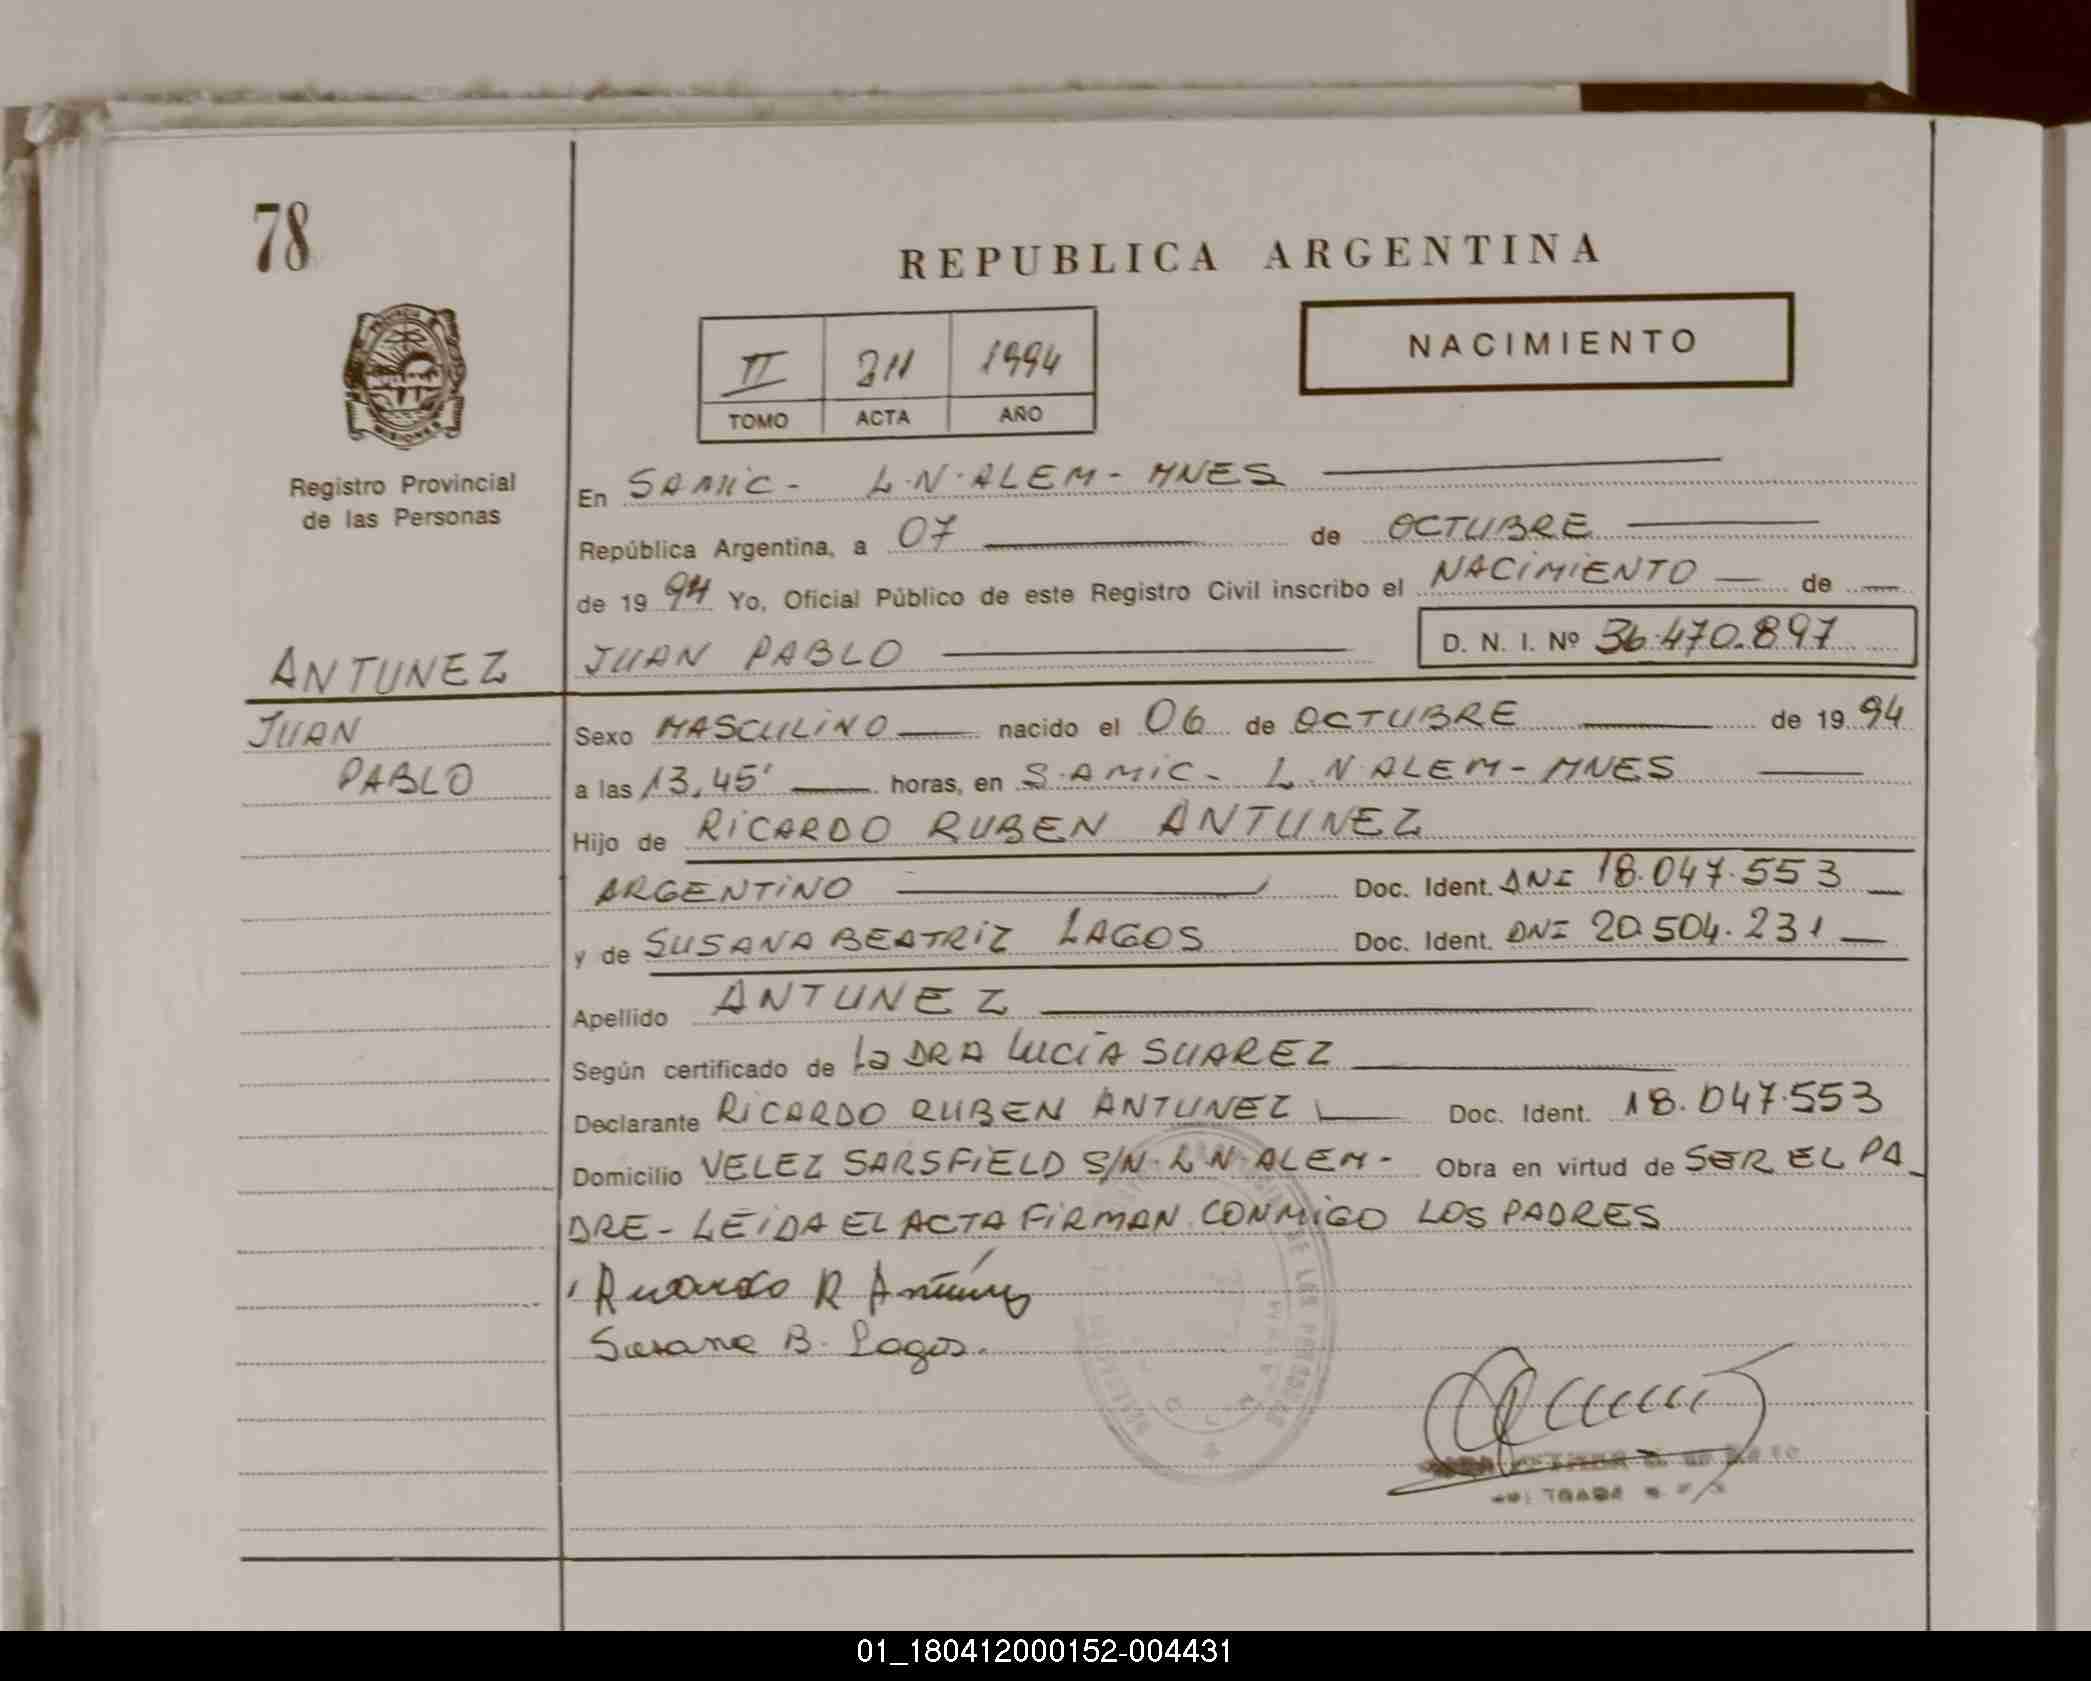 78
REPUBLICA ARGENTINA
PROVINCIA
MISIONES
NACIMIENTO
II 211 1994
TOMO ACTA AÑO
Registro Provincial
de las Personas
En SAMIC - L.N. ALEM - MNES
República Argentina, a 07 de OCTUBRE
de 1994 Yo, Oficial Público de este Registro Civil inscribo el NACIMIENTO de
ANTUNEZ JUAN PABLO D. N. I. Nº 36.470.897
JUAN
PABLO
Sexo MASCULINO nacido el 06 de OCTUBRE de 1994
a las 13,45' horas, en S.AMIC - L.N ALEM - MNES
Hijo de RICARDO RUBEN ANTUNEZ
ARGENTINO Doc. Ident. DNI 18.047.553
y de SUSANA BEATRIZ LAGOS Doc. Ident. DNI 20.504.231
Apellido ANTUNEZ
Según certificado de La DRA LUCIA SUAREZ
Declarante RICARDO RUBEN ANTUNEZ Doc. Ident. 18.047.553
Domicilio VELEZ SARSFIELD S/N - L N ALEM - Obra en virtud de SER EL PA
DRE - LEIDA EL ACTA FIRMAN CONMIGO LOS PADRES
Ricardo R Antúnez
Susana B. Lagos.
01_180412000152-004431